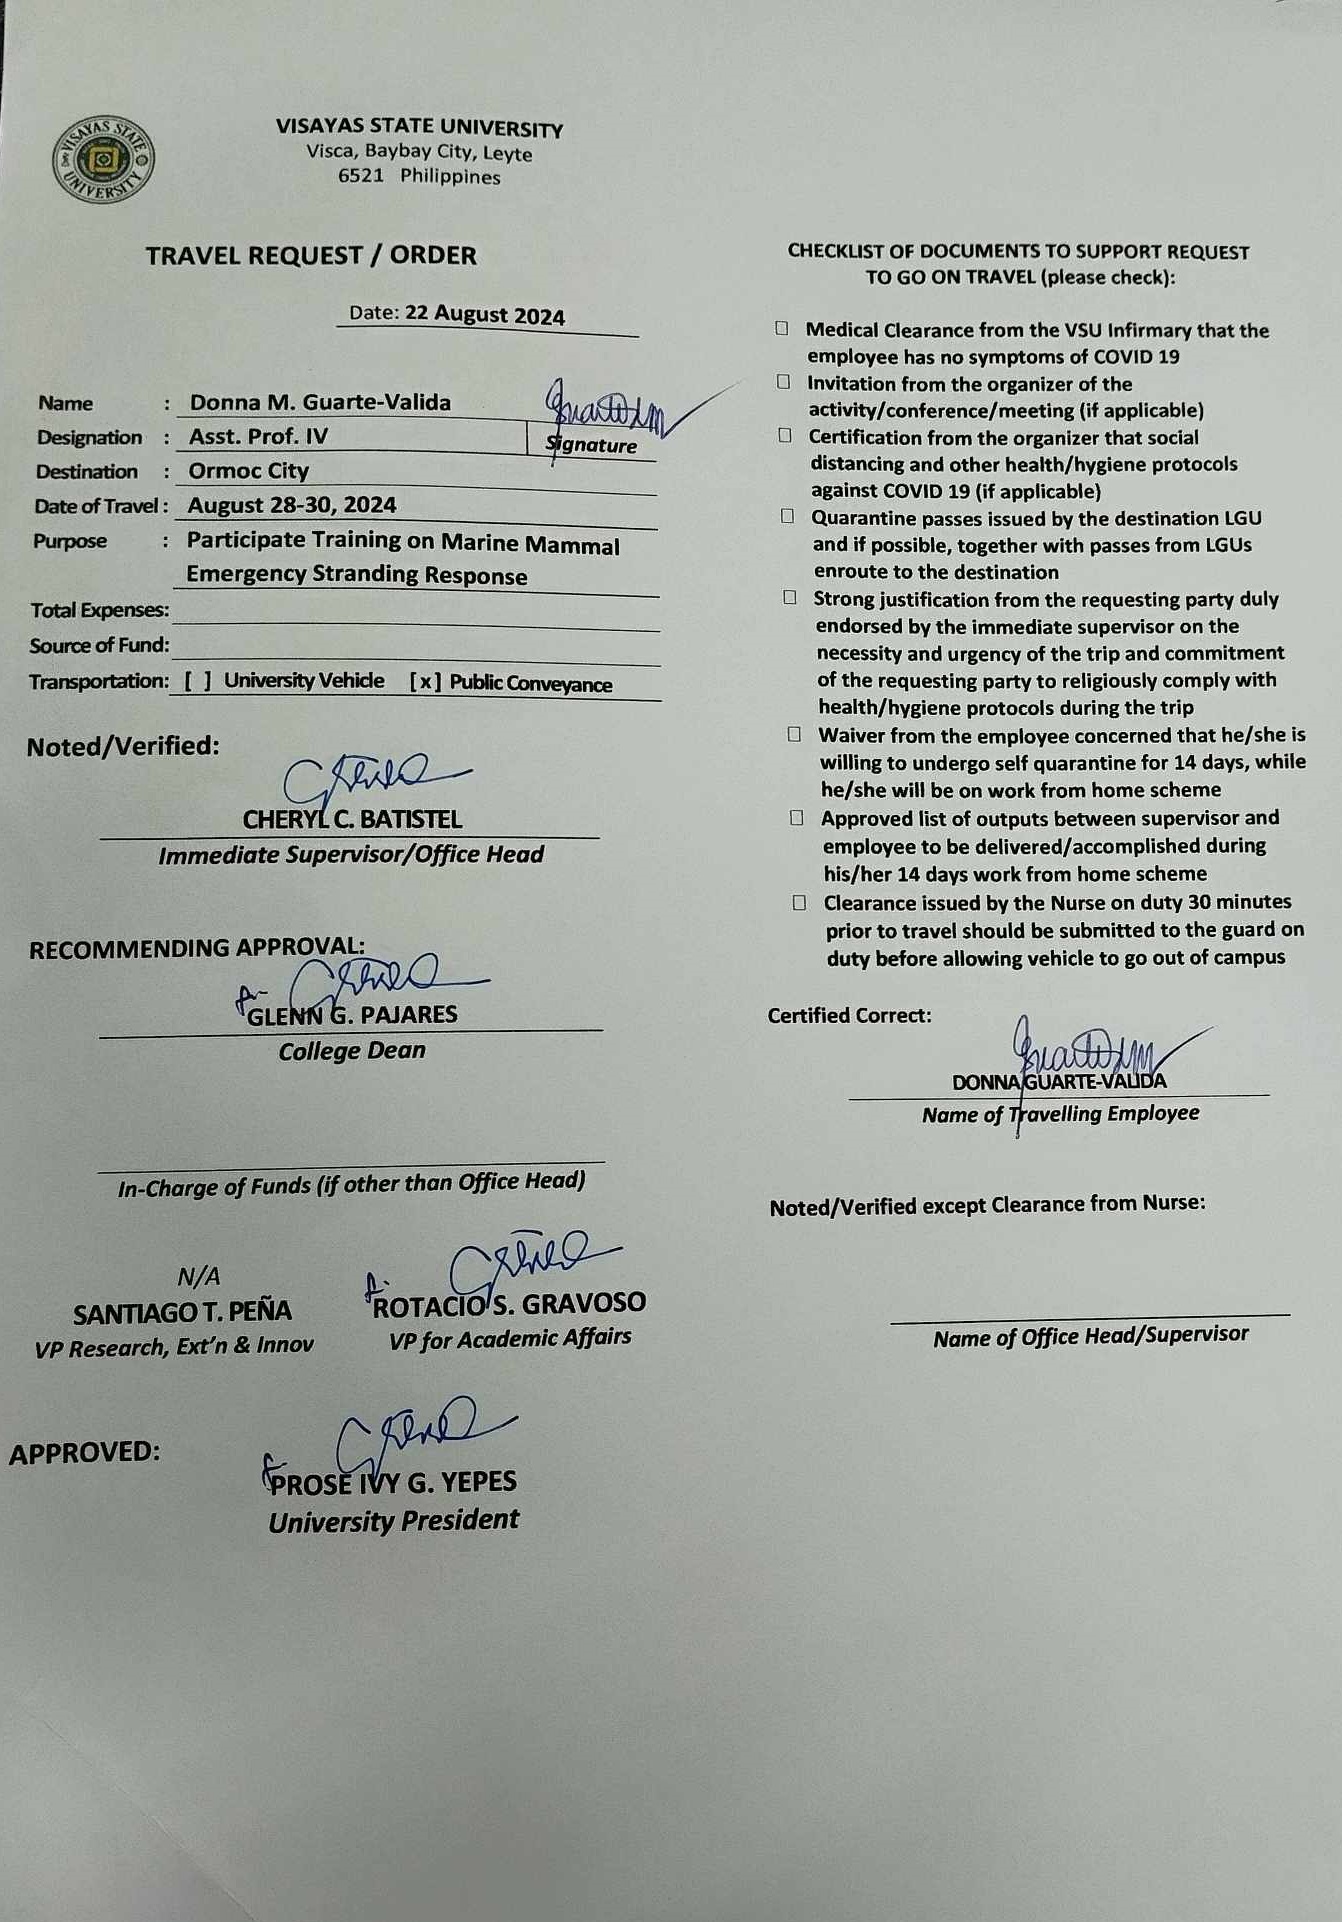 VISAYAS STATE UNIVERSITY
VISAYAS STATE UNIVERSITY
Visca, Baybay City, Leyte
6521 Philippines
TRAVEL REQUEST / ORDER
Date: 22 August 2024
Name : Donna M. Guarte-Valida
Designation : Asst. Prof. IV
Signature
Destination : Ormoc City
Date of Travel : August 28-30, 2024
Purpose : Participate Training on Marine Mammal
Emergency Stranding Response
Total Expenses:
Source of Fund:
Transportation: [ ] University Vehicle [x] Public Conveyance
Noted/Verified:
CHERYL C. BATISTEL
Immediate Supervisor/Office Head
RECOMMENDING APPROVAL:
GLENN G. PAJARES
College Dean
In-Charge of Funds (if other than Office Head)
N/A
SANTIAGO T. PEÑA
VP Research, Ext'n & Innov
ROTACIO S. GRAVOSO
VP for Academic Affairs
APPROVED:
PROSE IVY G. YEPES
University President
CHECKLIST OF DOCUMENTS TO SUPPORT REQUEST
TO GO ON TRAVEL (please check):
☐ Medical Clearance from the VSU Infirmary that the
employee has no symptoms of COVID 19
☐ Invitation from the organizer of the
activity/conference/meeting (if applicable)
☐ Certification from the organizer that social
distancing and other health/hygiene protocols
against COVID 19 (if applicable)
☐ Quarantine passes issued by the destination LGU
and if possible, together with passes from LGUs
enroute to the destination
☐ Strong justification from the requesting party duly
endorsed by the immediate supervisor on the
necessity and urgency of the trip and commitment
of the requesting party to religiously comply with
health/hygiene protocols during the trip
☐ Waiver from the employee concerned that he/she is
willing to undergo self quarantine for 14 days, while
he/she will be on work from home scheme
☐ Approved list of outputs between supervisor and
employee to be delivered/accomplished during
his/her 14 days work from home scheme
☐ Clearance issued by the Nurse on duty 30 minutes
prior to travel should be submitted to the guard on
duty before allowing vehicle to go out of campus
Certified Correct:
DONNA GUARTE-VALIDA
Name of Travelling Employee
Noted/Verified except Clearance from Nurse:
Name of Office Head/Supervisor